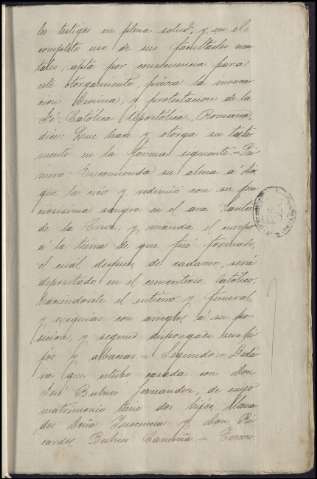 los testigos en plena salud, y en el
completo uso de sus facultades men
tales, apta por consecuencia para
este otorgamiento, previa la invoca
cion Divina, y protestacion de la
Fe Católica Apostólica, Romana,
dice: Que hace y otorga su testa
mento en la forma siguiente = Pri
mero = Encomienda su alma á Dios
que la crió y redimió con su pre
ciosisima sangre en el ara Santa
de la Cruz, y manda el cuerpo
á la tierra de que fué formado,
el cual despues de cadaver, será
depositado en el cementerio Católico,
haciendosele el entierro y funeral
y exequias con arreglo á su po
sicion, y segun dispongan sus hi
jos y albaceas = Segundo = Decla
ra que estubo casada con don
José Rubio Fernandez, de cuyo
matrimonio tiene dos hijos, llama
dos Doña y don Ri
cardo Rubio = Tercero